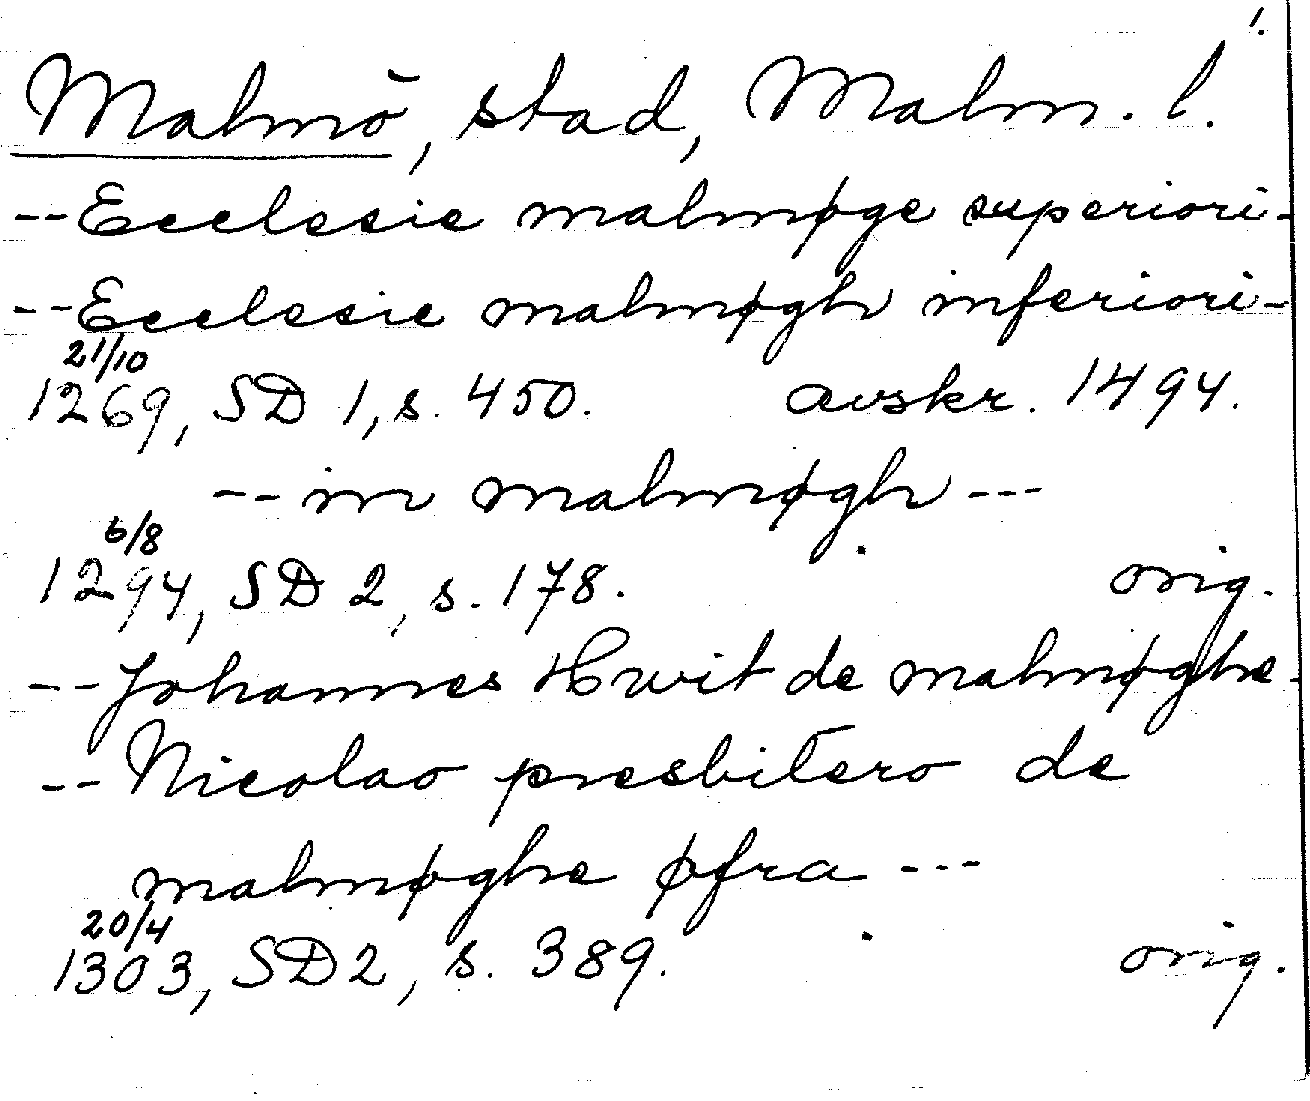 1.
Malmö, stad, Malm. l.
-- Ecclesie malmøge superiori -
-- Ecclesie malmøgh inferiori -
21/10
1269, SD 1, s. 450. avskr. 1494.
-- in malmøgh ---
6/8
1294, SD 2, s. 178. orig.
-- Johannes Hwit de malmøghe -
-- Nicolao presbitero de
malmøghe øfra ---
20/4
1303, SD 2, s. 389. orig.